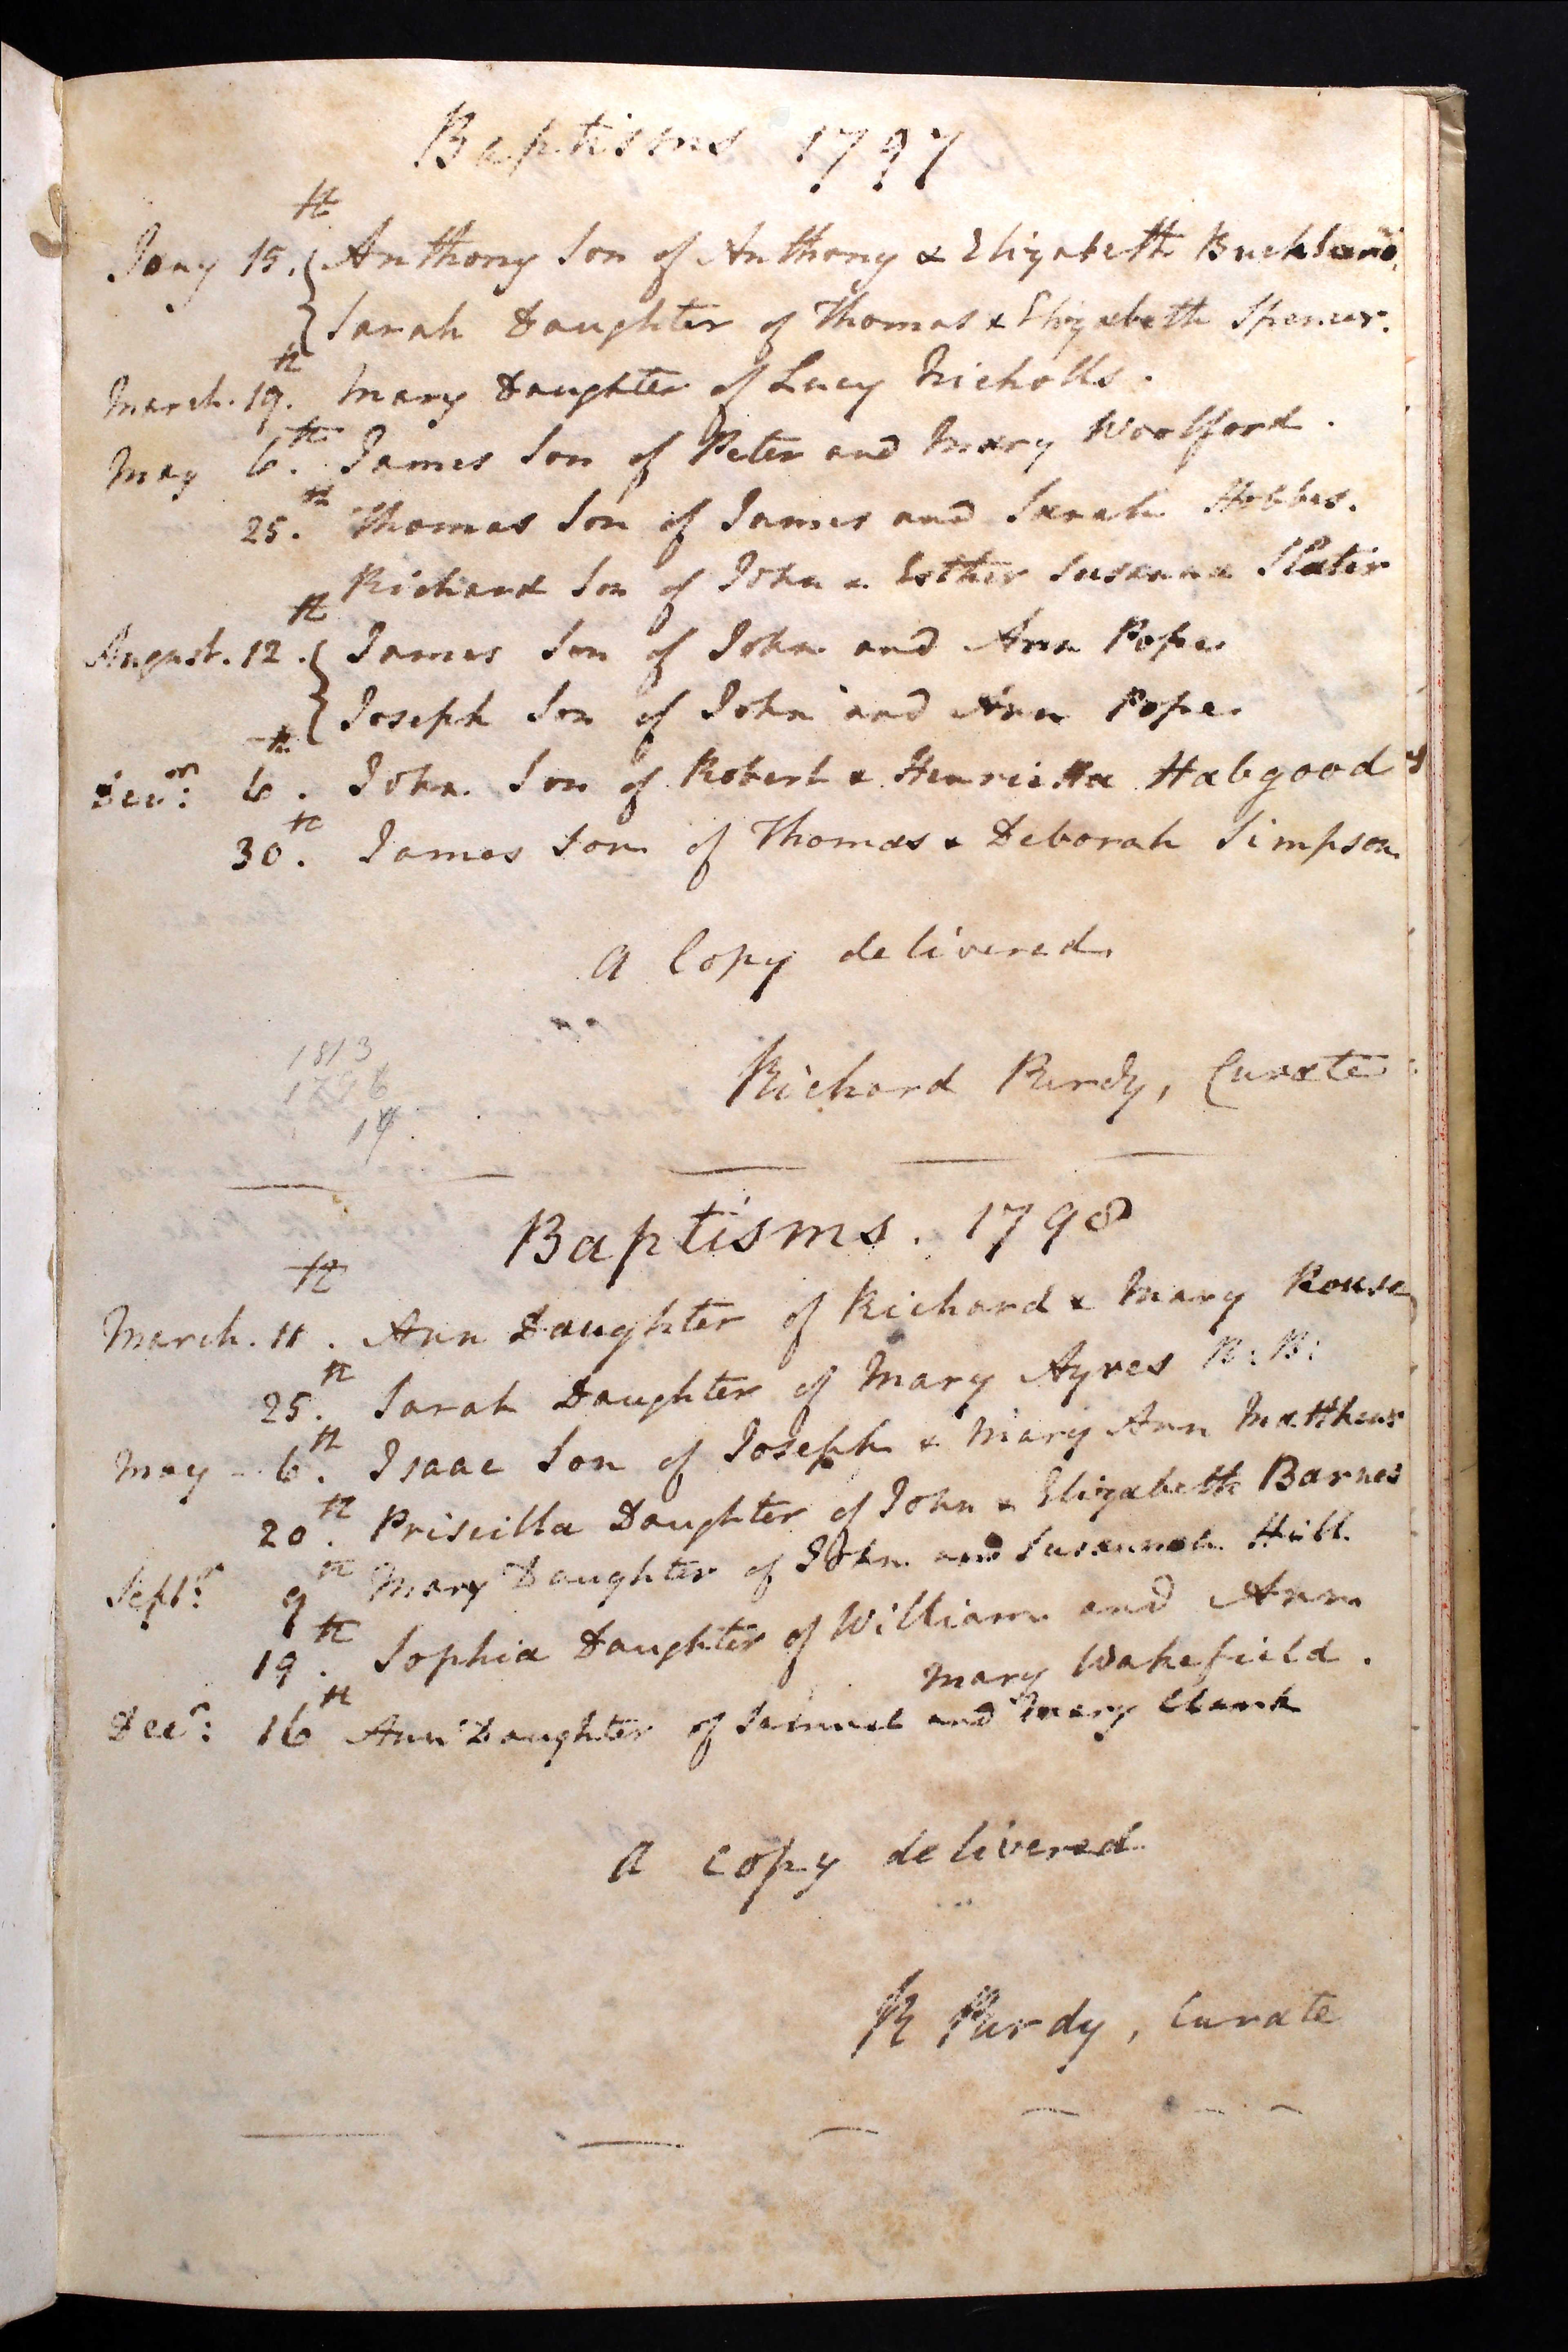 Baptisms 1797
Jany 15.th Anthony Son of Anthony & Elizabeth Buckland.
Sarah Daughter of Thomas & Elizabeth Spencer.
March. 19.th Mary Daughter of Lucy Nicholls.
May 6.th James Son of Peter and Mary Woolford.
25.th Thomas Son of James and Sarah Hobbes.
Richard Son of John & Esther Susanna Slater
August. 12.th James Son of John and Ann Pope
Joseph Son of John and Ann Pope.
Decr: 6.th John Son of Robert & Henrietta Habgood
30.th James Son of Thomas & Deborah Simpson
A Copy delivered
Richard Purdy, Curate
1813
14
Baptisms. 1798
March. 11.th Ann Daughter of Richard & Mary Rouse
25.th Sarah Daughter of Mary Ayres B:B:
May - 6.th Isaac Son of Joseph & Mary Ann Matthews
20.th Priscilla Daughter of John & Elizabeth Barnes
Septr: 9th Mary Daughter of John and Susannah Hill
19.th Sophia Daughter of William and Ann
Mary Wakefield.
Decr: 16th Ann Daughter of Samuel and Mary Clark
A copy delivered
R Purdy, Curate